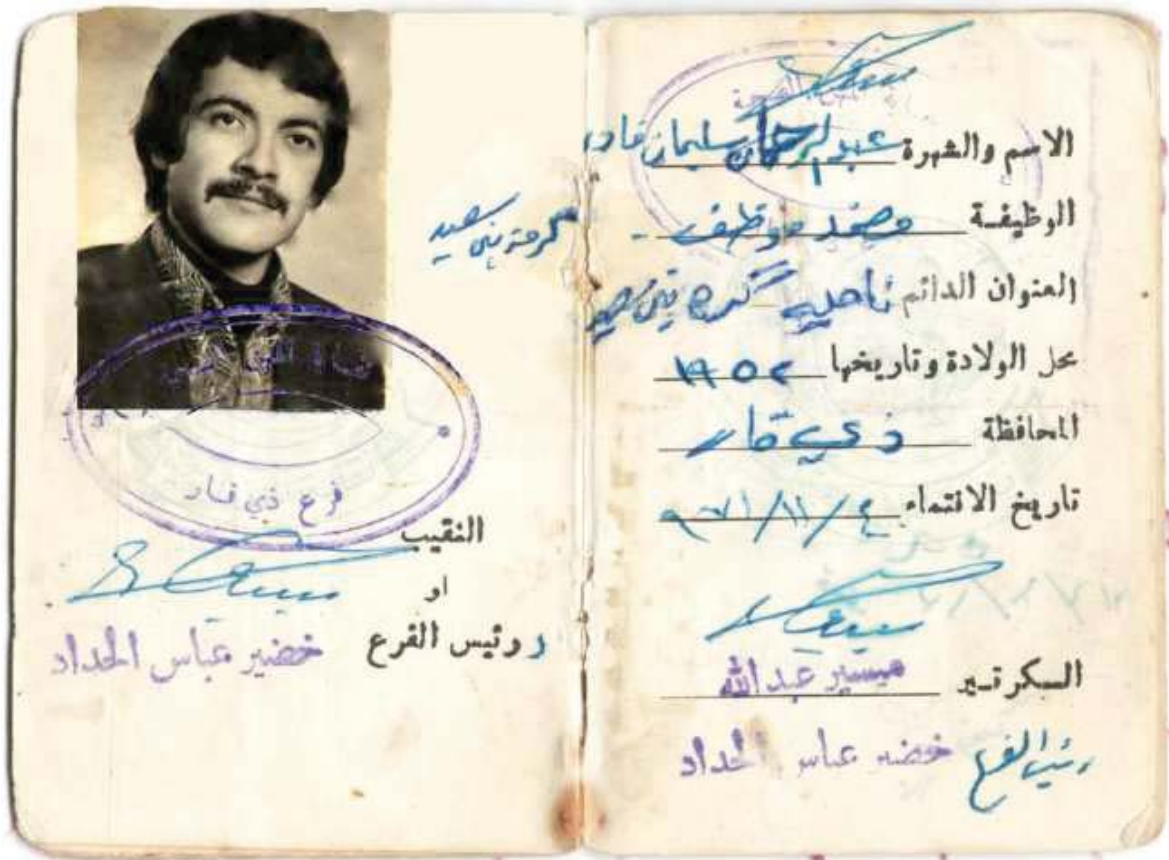 الاسم والشهرة عبدالرحمان سليمان قادر
الوظيفة مضمد موظف
العنوان الدائم ناحية گرمة بني سعيد
محل الولادة وتاريخها ١٩٥٢
المحافظة ذي قار
تاريخ الانتماء ٩٧١/١١/٤
السكرتير ميسير عبدالله
رئيس الفرع خضير عباس الحداد
گرمة بني سعيد
فرع ذي قار
النقيب
او
رئيس الفرع خضير عباس الحداد